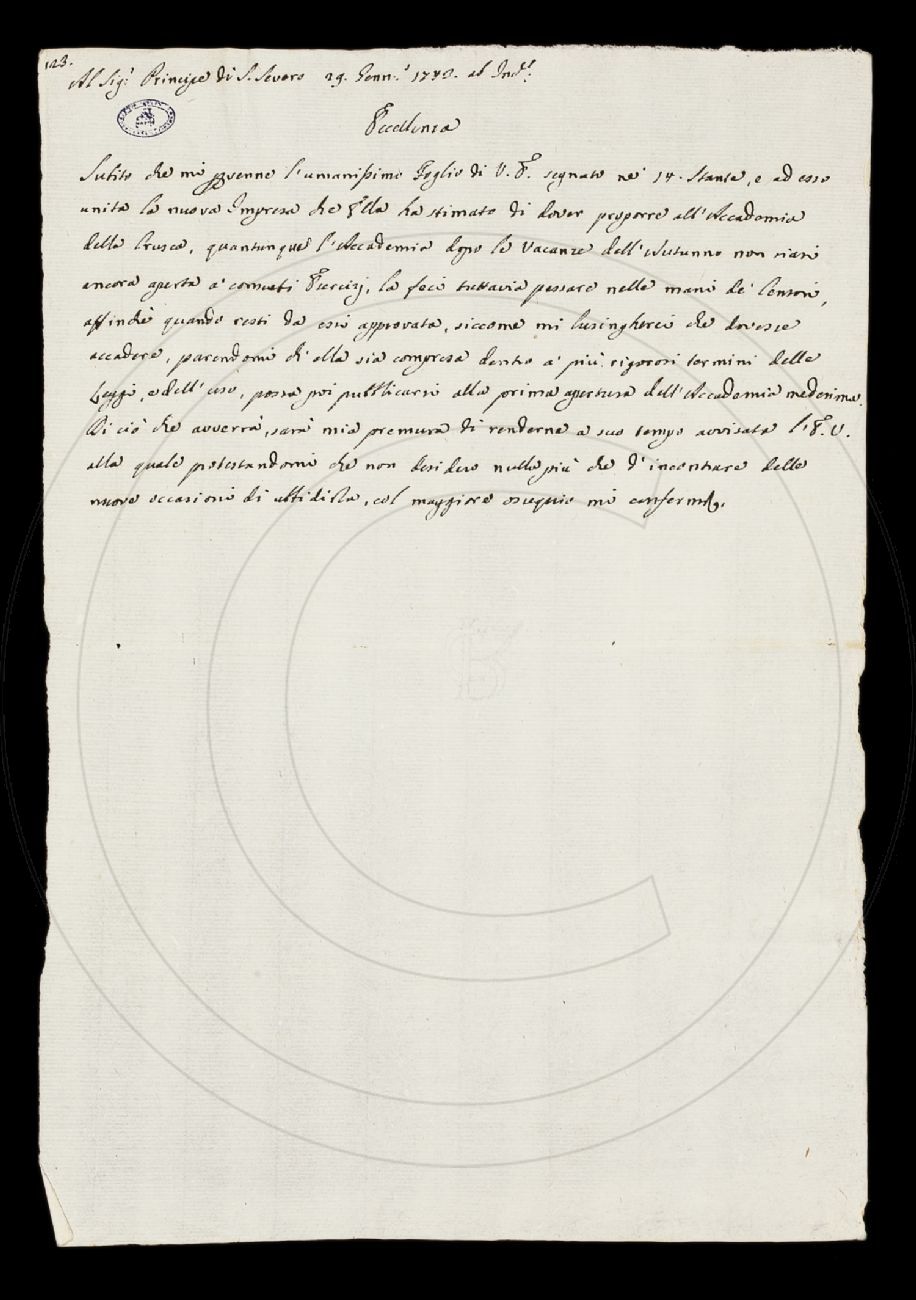 123.
Al Sig.r Principe di S. Severo 29. Genn.o ab Inc.e
Eccellenza
Subito che mi pervenne l'umanissimo Foglio di V. E. segnato ne' 14. Stante, e ad esso
unita la nuova Impresa che Ella ha stimato di dover proporre all'Accademia
della Crusca, quantunque l'Accademia dopo le Vacanze dell'Autunno non siasi
ancora aperta a' consueti Esercizj, la feci tuttavia passare nelle mani de' Censori,
affinchè quando resti da essi approvata, siccome mi lusingherei che dovesse
accadere, parendomi ch'ella sia compresa dentro a' più rigorosi termini delle
Leggi, e dell'uso, possa poi pubblicarsi alla prima apertura dell'Accademia medesima.
Di ciò che avverrà, sarà mia premura di renderne a suo tempo avvisata l'E. V.
alla quale protestandomi che non desidero nulla più che d'incontrare delle
nuove occasioni di ubbidirla, col maggiore ossequio mi confermo.